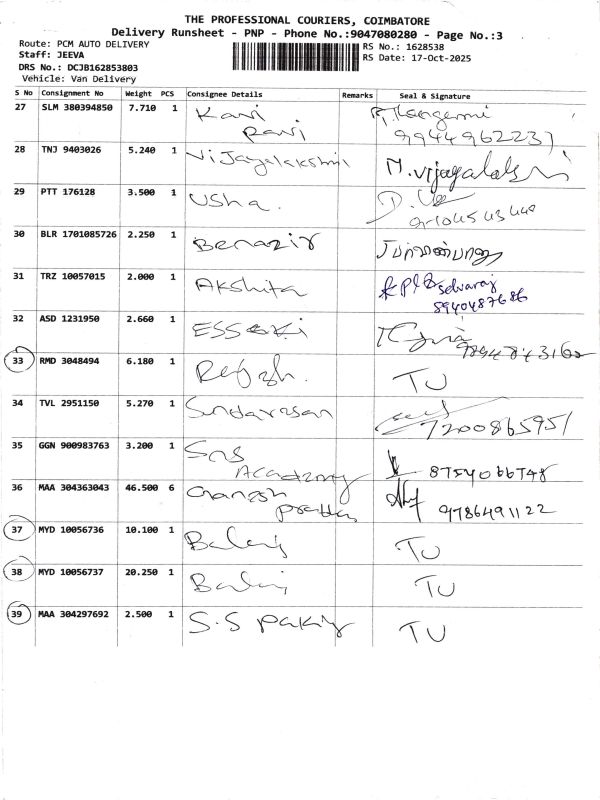 THE PROFESSIONAL COURIERS, COIMBATORE
Delivery Runsheet - PNP - Phone No.:9047080280 - Page No.:3
Route: PCM AUTO DELIVERY
Staff: JEEVA
DRS No.: DCJB162853803
Vehicle: Van Delivery
RS No.: 1628538
RS Date: 17-Oct-2025
S No Consignment No Weight PCS Consignee Details Remarks Seal & Signature
27 SLM 380394850 7.710 1 Kavi
Ravi 9944962231
28 TNJ 9403026 5.240 1 Vijayalakshmi M.Vijayalakshmi
29 PTT 176128 3.500 1 Usha.
30 BLR 1701085726 2.250 1 Benazir
31 TRZ 10057015 2.000 1 Akshita Selvaraj
8940487686
32 ASD 1231950 2.660 1 ESSakki
33 RMD 3048494 6.180 1 TU
34 TVL 2951150 5.270 1 Sundaresan 7200865951
35 GGN 900983763 3.200 1 SNS
Academy 8754066748
36 MAA 304363043 46.500 6 Ganesh 9786491122
37 MYD 10056736 10.100 1 Balaji TU
38 MYD 10056737 20.250 1 Balaji TU
39 MAA 304297692 2.500 1 S.S TU